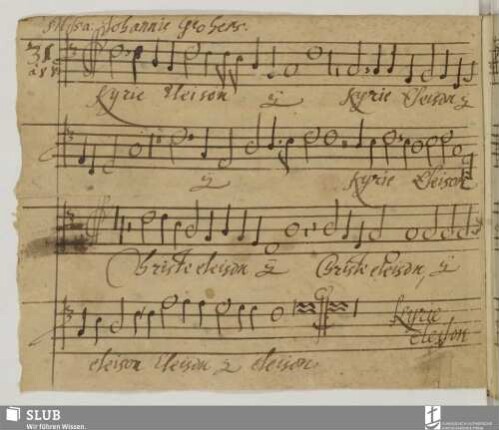 Missa: Johannis Grobers.
Kyrie Eleison ij Kyrie Eleison ij
ij Kyrie Eleison
Christe eleison ij Christe eleison, ij
eleison eleison ij eleison.
Kyrie
eleison
SLUB
Wir führen Wissen.